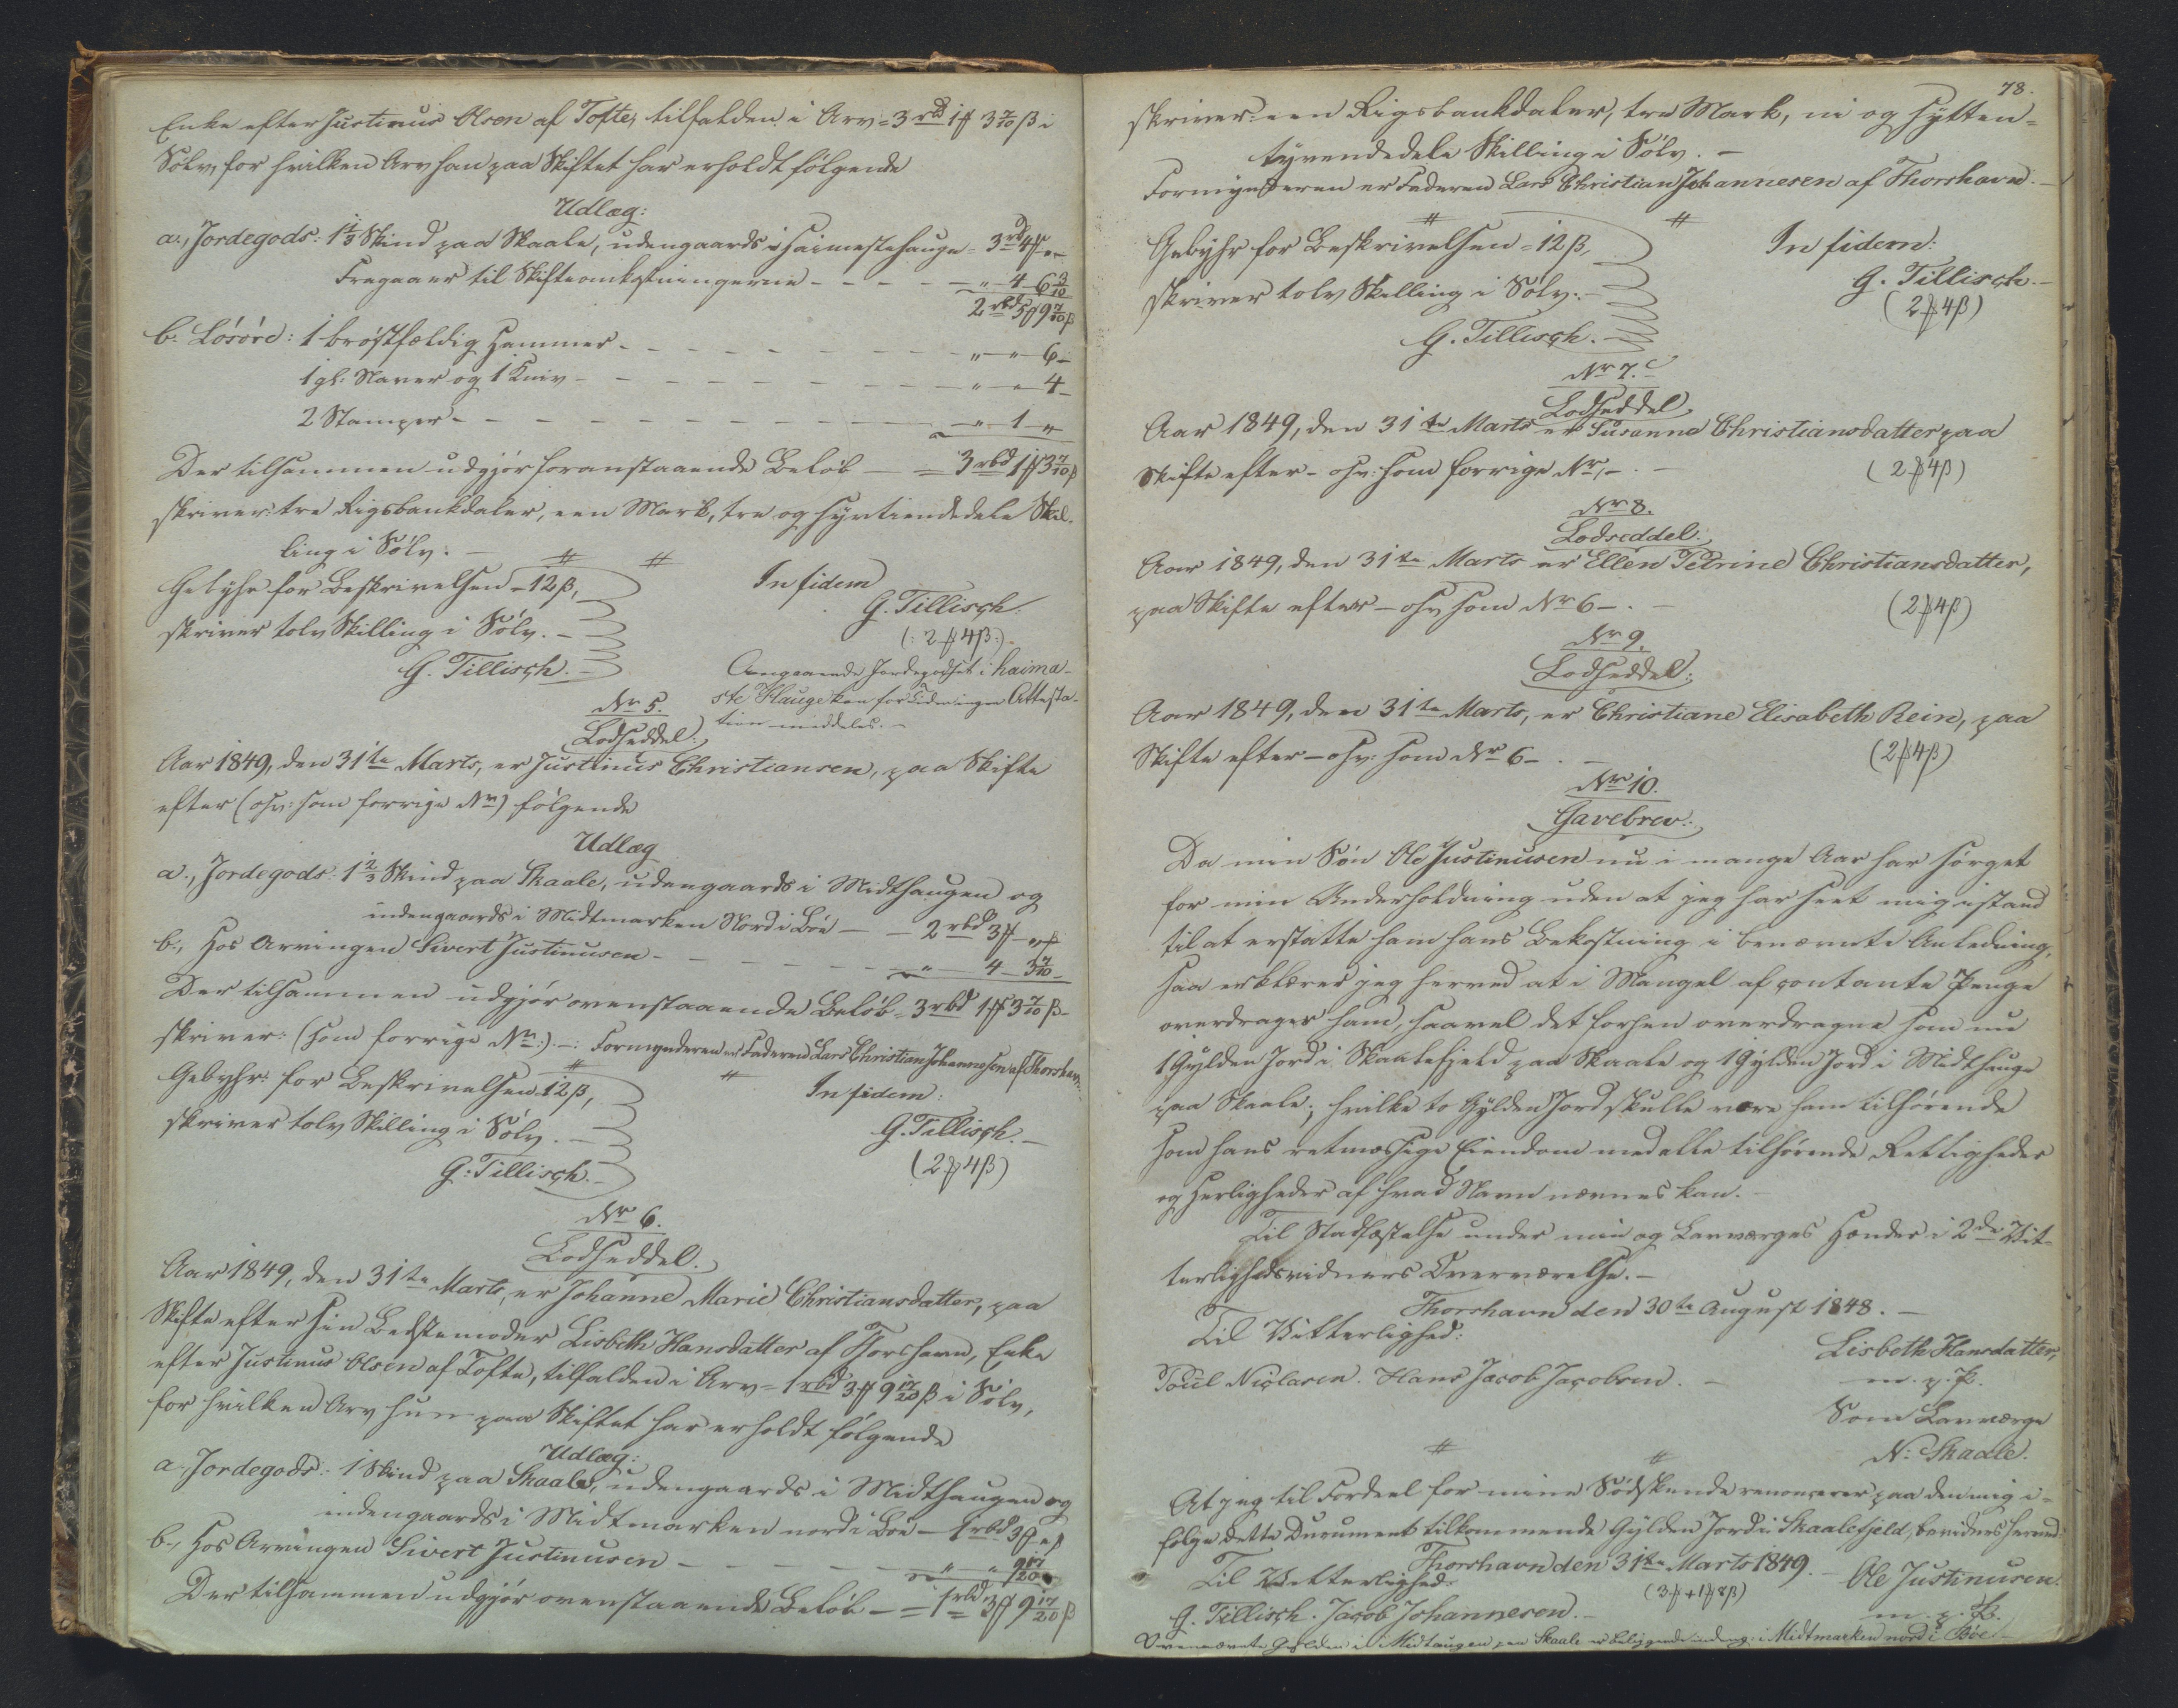 Enke efter Justinus Olsen af Tofte, tilfalden i Arv = 3 rbd 1 ℔ 3 7/10 ß i
Sølv, for hvilken Arv han paa Skiftet har erholdt følgende
Udlæg:
a., Jordegods: 1 1/3 Skind paa Skaale, udengaards i Haimestehauge = 3 rbd 4 ℔ "
Fragaaer til Skifteomkostningerne - - - - - " 4 - 6 3/10
2 rbd 5 ℔ 9 7/10 ß
b. Løsøre: 1 brøstfældig Hammer - - - - - " - " - 6 -
1 gl: Naver og 1 Kniv - - - - - " - " - 4 -
2 Stamper - - - - - " - 1 - "
Der tilsammen udgjør foranstaaende Beløb - = 3 rbd 1 ℔ 3 7/10 ß
skriver: tre Rigsbankdaler, een Mark, tre og syvtiendedele Skil-
ling i Sølv. -
Gebyhr for Beskrivelsen = 12 ß,
skriver tolv Skilling i Sølv. -
G. Tillisch. -
In fidem
G. Tillisch.
(: 2 ℔ 4 ß :)
Angaaende Jordegodset i haima-
ste Hauge kan for Tiden ingen Attesta-
tion meddeles. -
Nr 5.
Lodseddel:
Aar 1849, den 31te Marts, er Justinus Christiansen, paa Skifte
efter (osv: som forrige Nr) følgende
Udlæg
a., Jordegods: 1 2/3 Skind paa Skaale, udengaards i Midthaugen og
indengaards i Midtmarken Nord i Bøe - - 2 rbd 3 ℔ - " ß
b., Hos Arvingen Sivert Justinusen - - - - - " - 4 - 3 7/10 -
Der tilsammen udgjør ovenstaaende Beløb = 3 rbd 1 ℔ 3 7/10 ß -
skriver: (som forrige Nr:). -: Formynderen er Faderen Lars Christian Johannesen af Thorshavn.
Gebyhr for Beskrivelsen 12 ß,
skriver tolv Skilling i Sølv. -
G. Tillisch. -
In fidem:
G. Tillisch. -
(2 ℔ 4 ß)
Nr 6.
Lodseddel.
Aar 1849, den 31te Marts, er Johanne Marie Christiansdatter, paa
Skifte efter sin Bedstemoder Lisbeth Hansdatter af Thorshavn, Enke
efter Justinus Olsen af Tofte, tilfalden i Arv = 1 rbd 3 ℔ 9 17/20 ß i Sølv,
for hvilken Arv hun paa Skiftet har erholdt følgende
Udlæg:
a. Jordegods: 1 Skind paa Skaale, udengaards i Midthaugen og
indengaards i Midtmarken nord i Bøe - 1 rbd 3 ℔ " ß
b., Hos Arvingen Sivert Justinusen - - - - - " " 9 17/20
Der tilsammen udgjør ovenstaaende Beløb - = 1 rbd 3 ℔ 9 17/20 ß
78.
skriver: een Rigsbankdaler, tre Mark, ni og sytten-
tyvendedele Skilling i Sølv. -
Formynderen er Faderen Lars Christian Johannesen af Thorshavn. -
Gebyhr for Beskrivelsen = 12 ß,
skriver tolv Skilling i Sølv. -
G. Tillisch. -
In fidem:
G. Tillisch. -
(2 ℔ 4 ß)
Nr 7.
Lodseddel
Aar 1849, den 31te Marts er Susanne Christiansdatter paa
Skifte efter - osv: som forrige Nr, -. -
(2 ℔ 4 ß)
Nr 8.
Lodseddel:
Aar 1849, den 31te Marts er Ellen Petrine Christiansdatter,
paa Skifte efter - osv som Nr 6 -. -
(2 ℔ 4 ß)
Nr 9.
Lodseddel:
Aar 1849, den 31te Marts, er Christiane Elisabeth Rein, paa
Skifte efter - osv: som Nr 6 -. -
(2 ℔ 4 ß)
Nr 10.
Gavebrev:
Da min Søn Ole Justinusen nu i mange Aar har sørget
for min Underholdning uden at jeg har seet mig istand
til at erstatte ham hans Bekostning i benævnte Anledning,
saa erklærer jeg herved at i Mangel af contante Penge
overdrages ham, saavel det forhen overdragne som nu
1 Gylden Jord i Skaalefjeld paa Skaale og 1 Gylden Jord i Midthauge
paa Skaale; hvilke to Gylden Jord skulle være ham tilhørende
som hans retmæssige Eiendom med alle tilhørende Rettigheder
og Herligheder af hvad Navn nævnes kan. -
Til Stadfæstelse under min og Laugværges Hænder i 2de Vit-
terlighedsvidners Overværelse. -
Thorshavn den 30te August 1848. -
Til Vitterlighed:
Lisbeth Hansdatter,
Poul Niclasen. Hans Jacob Jacobsen. -
m. p. P.
Som Laugværge
N: Skaale.
At jeg til Fordeel for mine Sødskende renoncerer paa den mig i-
følge dette Document tilkommende Gylden Jord i Skaalefjeld, bevidnes herved.
Thorshavn den 31te Marts 1849. -
Til Vitterlighed:
(3 ℔ + 1 ℔ 8 ß)
Ole Justinusen.
G. Tillisch. Jacob Johannesen. -
m. p. P.
Ovennævnte Gylden i Midtaugen paa Skaale er beliggende indeng: i Midtmarken nord i Bøe. -